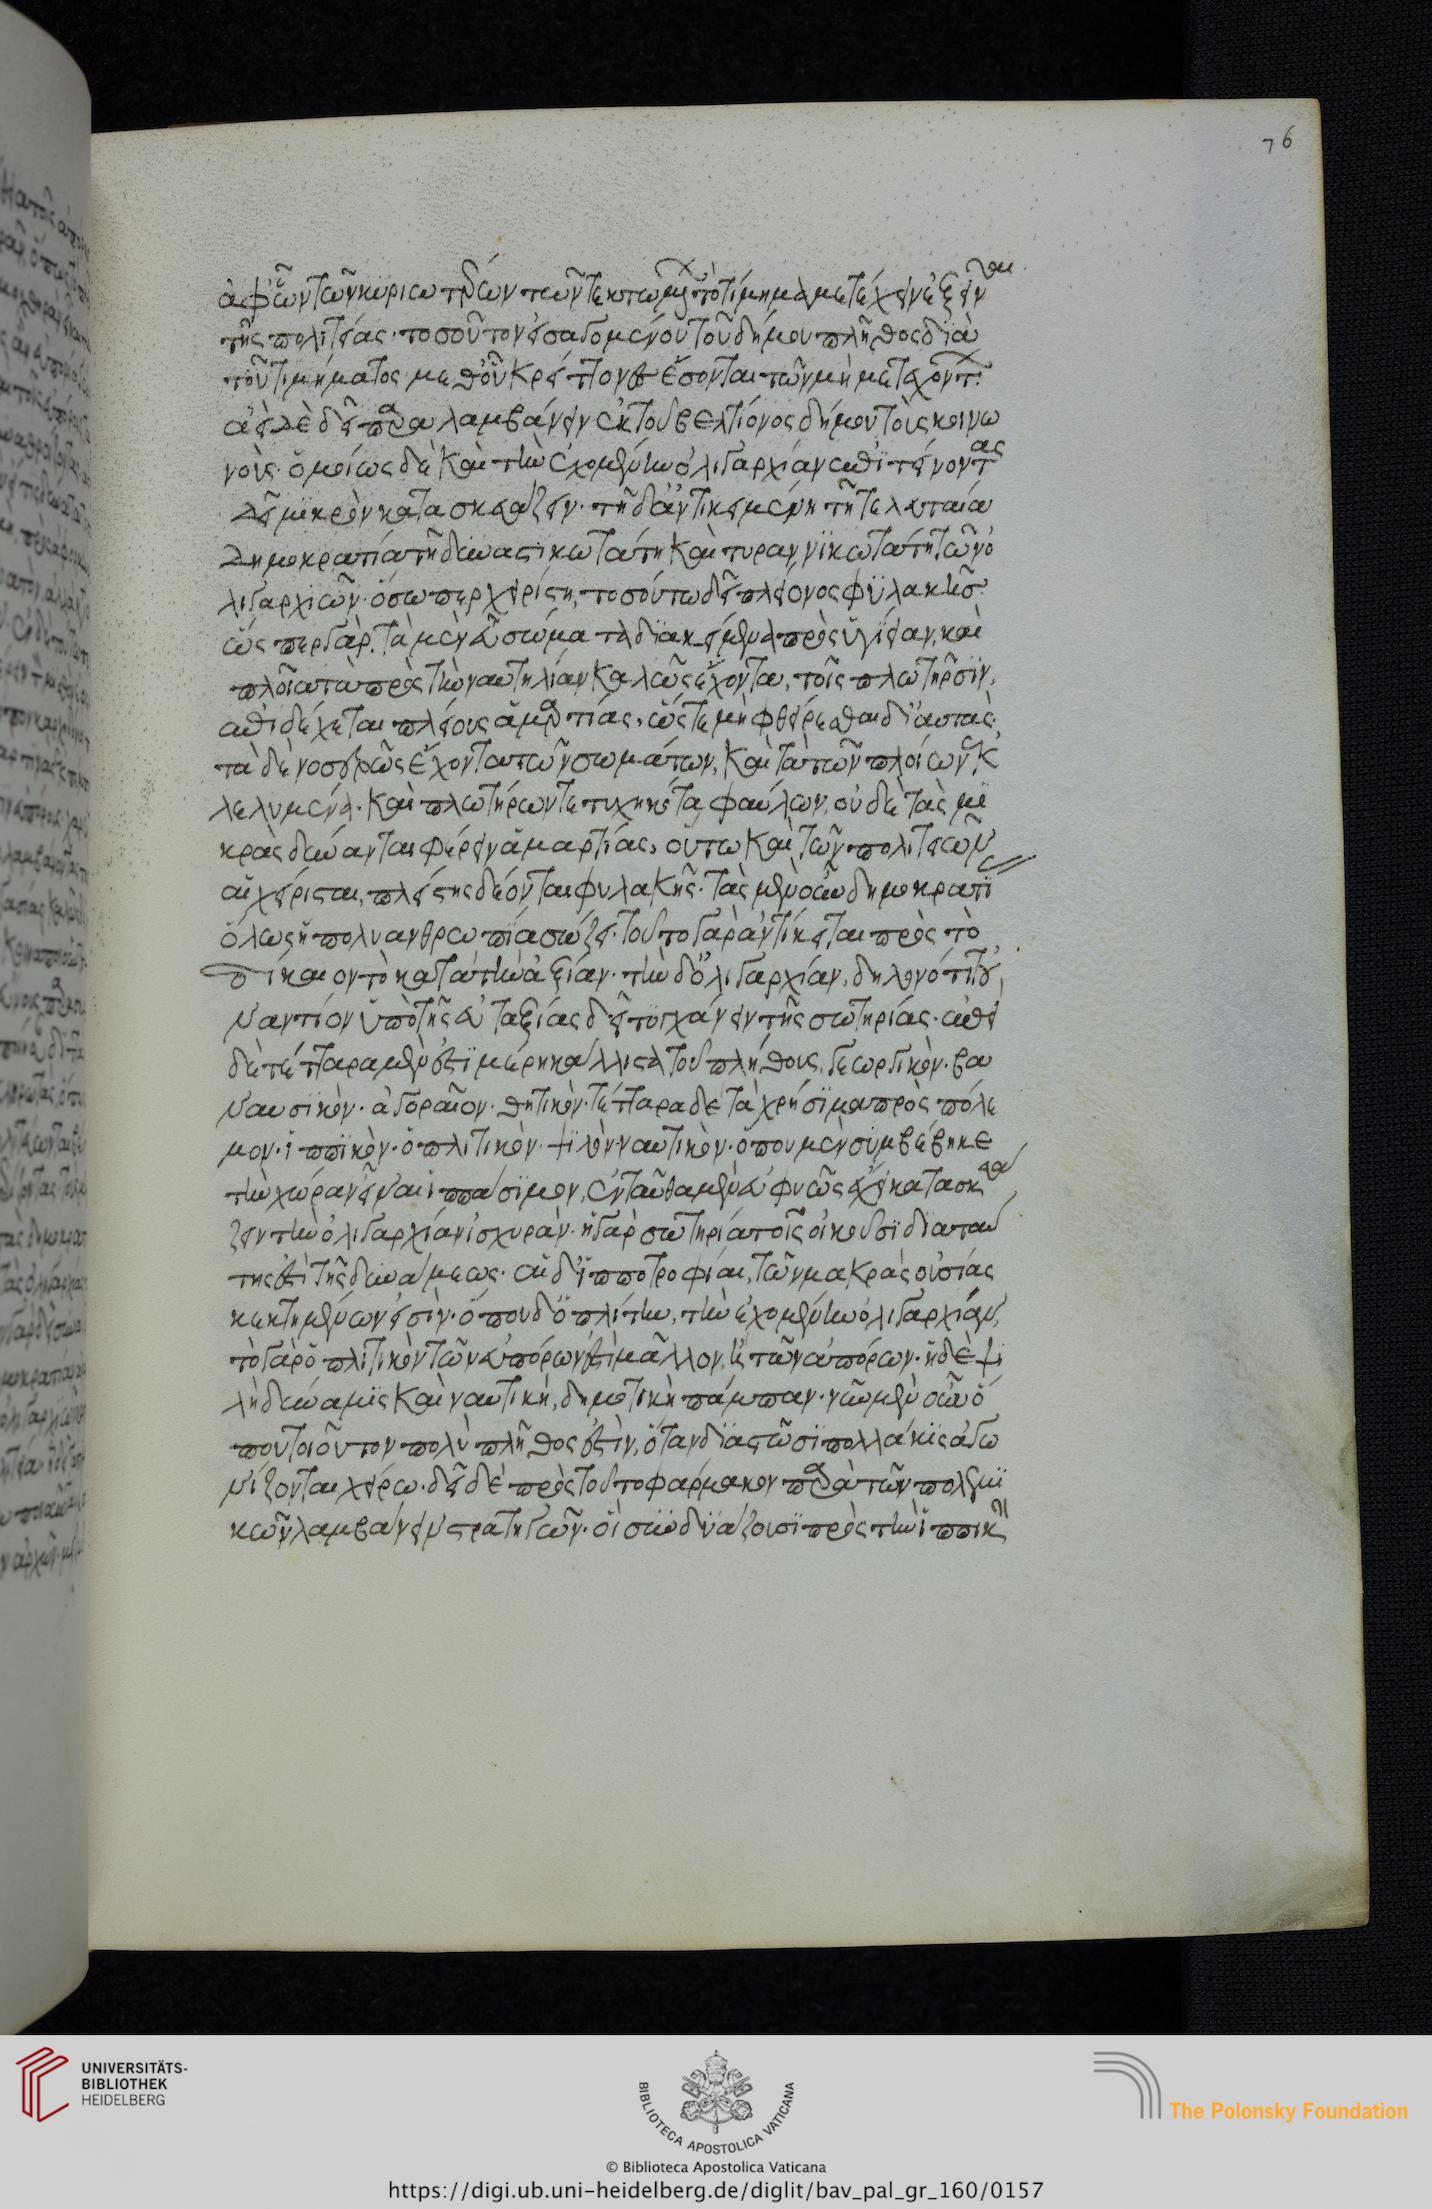 ἀφ' ὧν τῶν κυριωτέρων τῶν τε κτωμένων τὸ τίμημα μετέχειν ἐξεῖναι
τῆς πολιτείας· τοσοῦτον εἰσαγομένου τοῦ δήμου πλῆθος διὰ
τοῦ τιμήματος μεθ' οὗ κρείττονες ἔσονται τῶν μὴ μετεχόντων.
ἀεὶ δὲ δεῖ παραλαμβάνειν ἐκ τοῦ βελτίονος δήμου τοὺς κοινω
νούς. ὁμοίως δὲ καὶ τὴν ἐχομένην ὀλιγαρχίαν ἐπιτείνοντας
δεῖ μικρὸν κατασκευάζειν. τῇ δ' ἀντικειμένῃ τῇ τελευταία
δημοκρατία τῇ δυναστικωτάτη καὶ τυραννικωτάτη τῶν ὀ
λιγαρχιῶν. ὅσω περ χειρίστη, τοσούτω δεῖ πλείονος φυλακῆς.
ὥσπερ γὰρ τὰ μὲν εὖ σώματα διακείμενα πρὸς ὑγίειαν, καὶ
πλοῖα τὰ πρὸς τὴν ναυτηλίαν καλῶς ἔχοντα, τοῖς πλωτῆρσιν,
ἐπιδέχεται πλείους ἁμαρτίας, ὥστε μὴ φθείρεσθαι δι' αὐτάς.
τὰ δὲ νοσερῶς ἔχοντα τῶν σωμάτων, καὶ τὰ τῶν πλοίων ἐκ
λελυμένα. καὶ πλωτήρων τετυχηκότα φαύλων, οὐδὲ τὰς μι
κρὰς δύνανται φέρειν ἁμαρτίας, οὕτω καὶ τῶν πολιτειῶν
αἱ χείρισται, πλείστης δέονται φυλακῆς. τὰς μὲν οὖν δημοκρατί
ὅλως ἡ πολυανθρωπία σώζει. τοῦτο γὰρ ἀντίκειται πρὸς τὸ
δίκαιον τὸ κατὰ τὴν ἀξίαν. τὴν δ' ὀλιγαρχίαν, δῆλον ὅτι τοὐ
ναντίον ὑπὸ τῆς εὐταξίας δεῖ τυγχάνειν τῆς σωτηρίας. ἐπεὶ
δὲ τέτταρα μὲν ἐστὶ μέρη μάλλιστα τοῦ πλήθους, γεωργικόν. βα
ναυσικόν. ἀγοραῖον. θητικόν. τέτταρα δὲ τὰ χρήσιμα πρὸς πόλε
μον. ἱππικόν. ὁπλιτικόν. ψιλόν. ναυτικόν. ὅπου μὲν συμβέβηκε
τὴν χώραν εἶναι ἱππάσιμον, ἐνταῦθα μὲν εὐφυῶς ἔχει κατασκευά
ζειν τὴν ὀλιγαρχίαν ἰσχυράν. ἡ γὰρ σωτηρία τοῖς οἰκοῦσι διὰ ταύ
της ἐστὶ τῆς δυνάμεως. αἱ δ' ἱπποτροφίαι, τῶν μακρὰς οὐσίας
κεκτημένων εἰσίν. ὅπου δ' ὁπλίτην, τὴν ἐχομένην ὀλιγαρχίαν,
τὸ γὰρ ὁπλιτικὸν τῶν εὐπόρων ἐστὶ μᾶλλον, ἢ τῶν ἀπόρων. ἡ δὲ ψι
λὴ δύναμις καὶ ναυτική, δημοτικὴ πάμπαν. νῦν μὲν οὖν ὅ
που τοιοῦτον πολὺ πλῆθος ἐστίν, ὅταν διαστῶσι πολλάκις ἀγω
νίζονται χείρω. δεῖ δὲ πρὸς τοῦτο φάρμακον παρὰ τῶν πολεμι
κῶν λαμβάνειν στρατηγῶν. οἳ συνδυάζουσι πρὸς τὴν ἱππικὴν
76
UNIVERSITÄTS-
BIBLIOTHEK
HEIDELBERG
BIBLIOTECA APOSTOLICA VATICANA
The Polonsky Foundation
© Biblioteca Apostolica Vaticana
https://digi.ub.uni-heidelberg.de/diglit/bav_pal_gr_160/0157